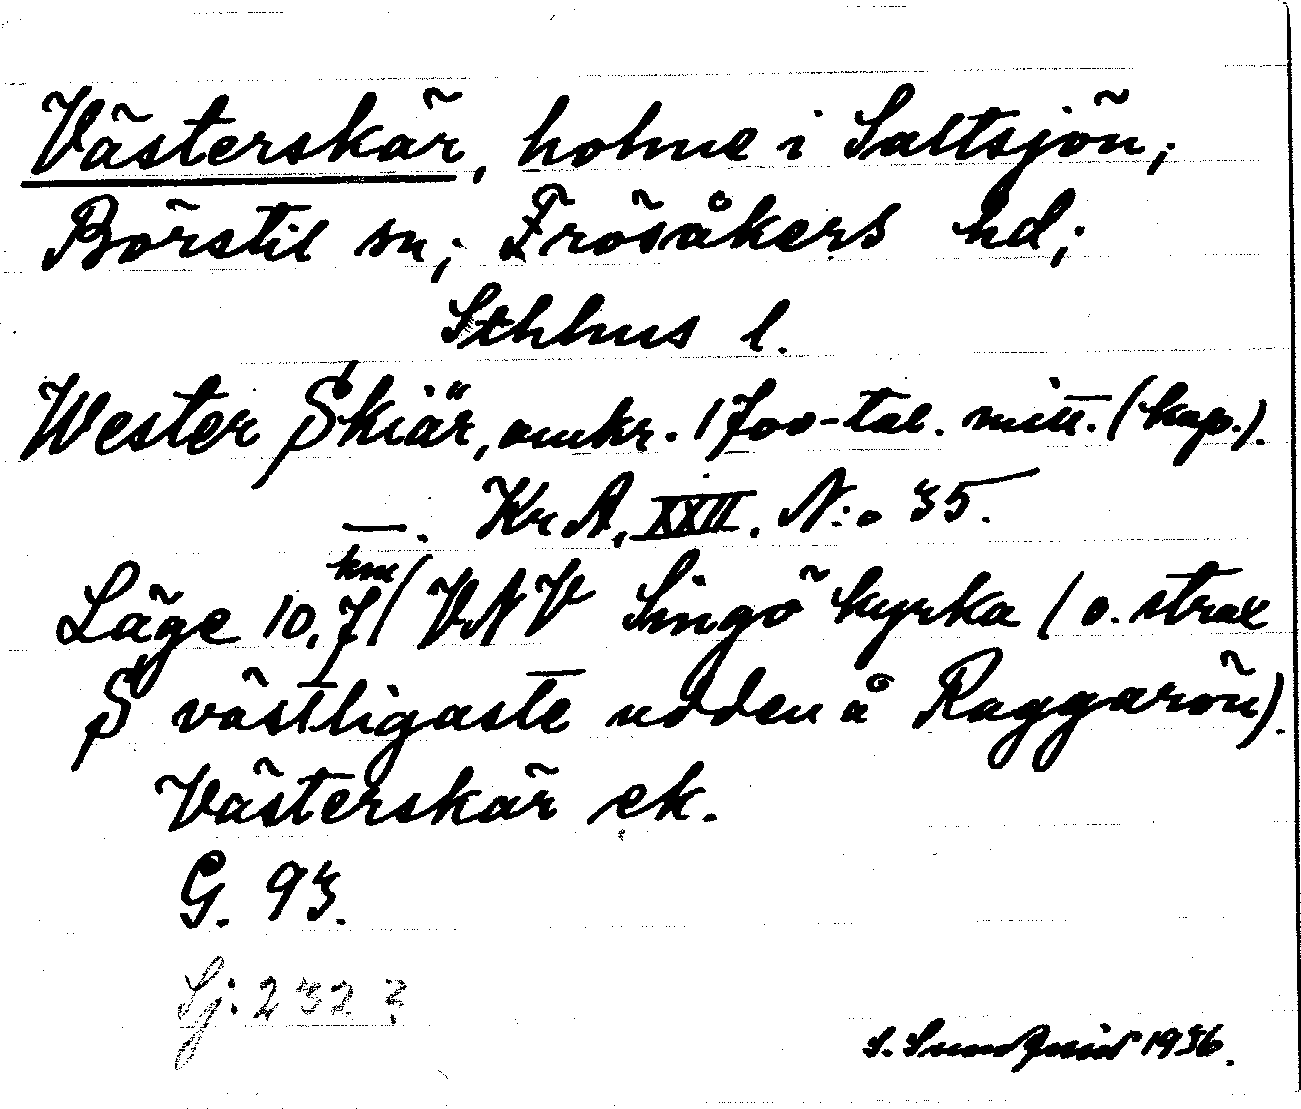 Västerskär, holme i Saltsjön;
Börstil sn; Frösåkers hd;
Sthlms l.
Wester Skiär, omkr. 1700-tal. mitt. (kop.).
—. KrA, XXII. N:o 35.
Läge 10,7 km / VNV Singö kyrka (o. strax
S västligaste udden å Raggarön).
Västerskär ek.
G. 93.
Sj: 232?
S. Sundquist 1936.